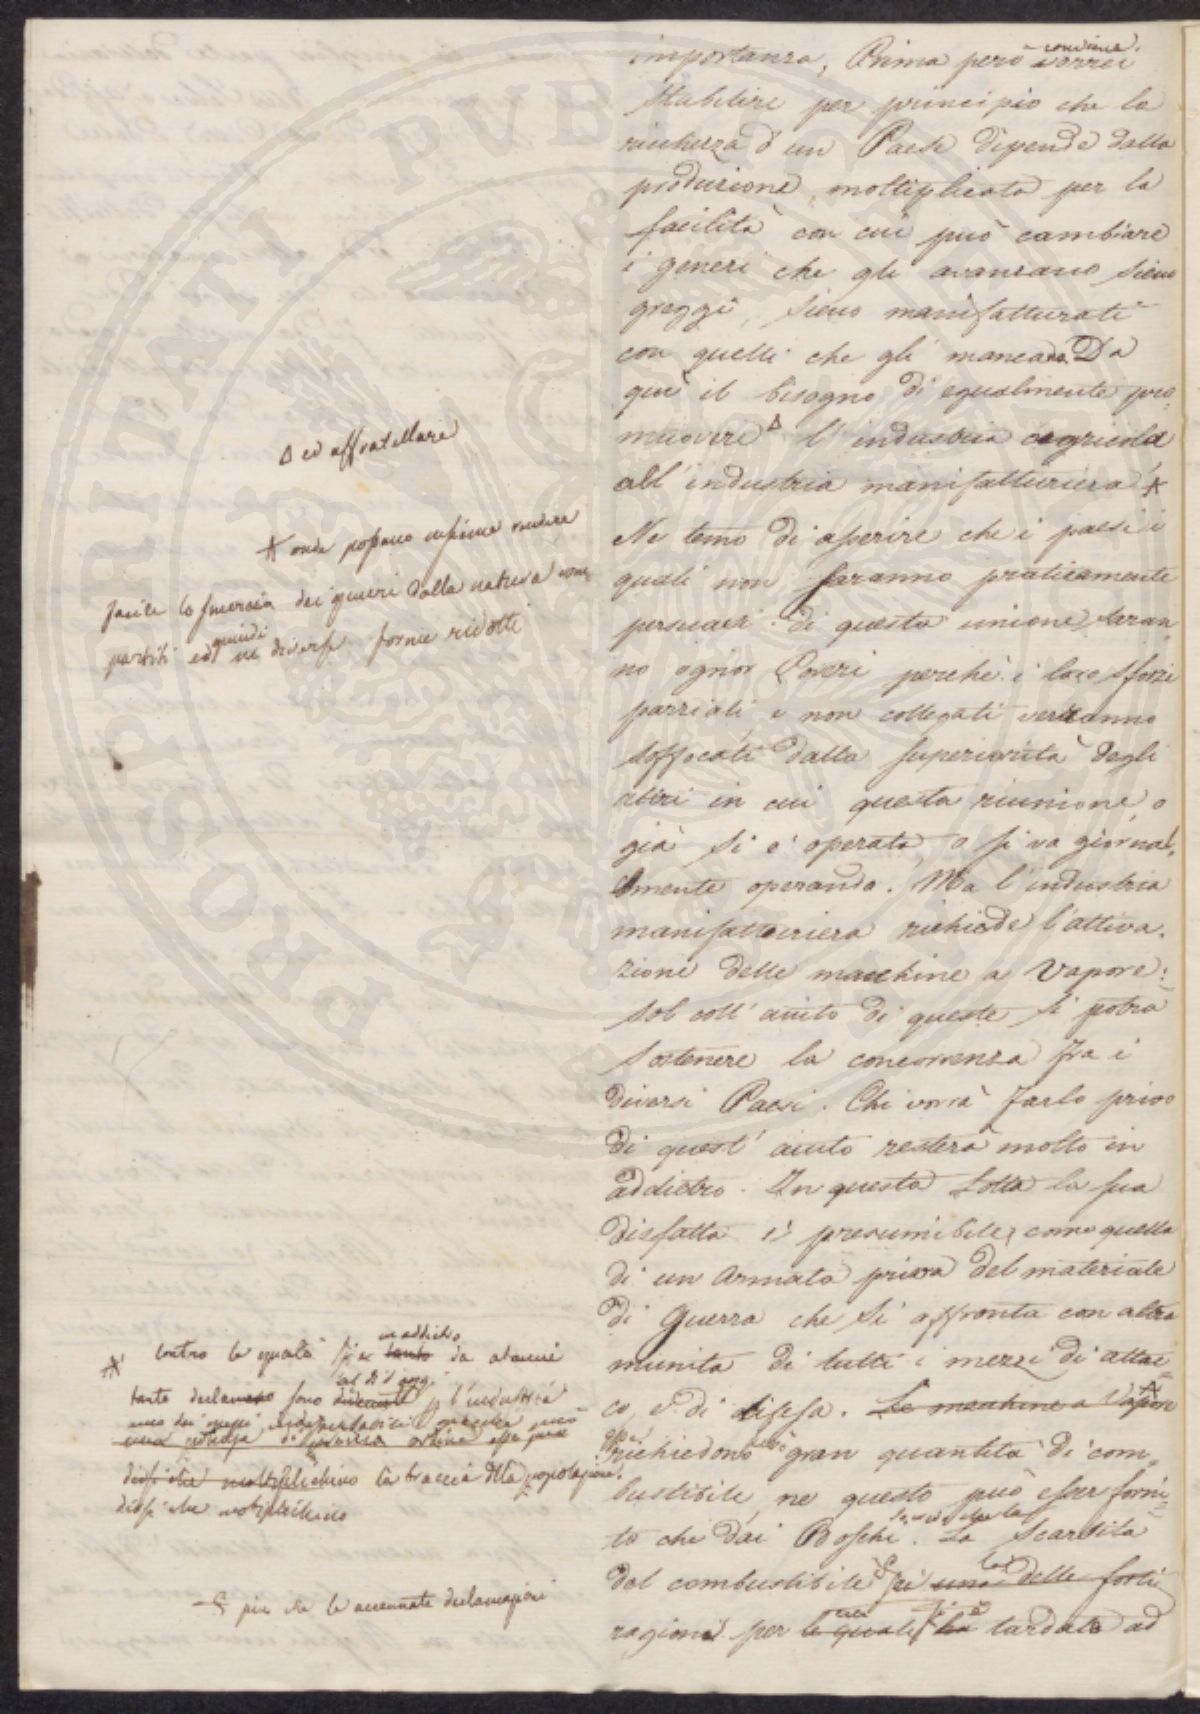 importanza, Prima però conviene vorrei
stabilire per principio che la
ricchezza d'un Paese dipende dalla
produzione, moltiplicata per la
facilità con cui può cambiare
i generi che gli avanzano sieno
greggi, sieno manifatturati
con quelli che gli mancano. Da
qui il bisogno di egualmente pro-
muovere Δ l'industria agricola
all'industria manifatturiera. *
Ne temo di asserire che i paesi i
quali non saranno praticamente
persuasi di questa unione, saran-
no ognor Poveri perchè i loro sforzi
parziali e non collegati verranno
soffocati dalla superiorità degli
altri in cui questa riunione o
già si è operata, o si va giornal-
mente operando. Ma l'industria
manifatturiera richiede l'attiva-
zione delle macchine a vapore:
sol coll'aiuto di queste si potrà
sostenere la concorrenza fra i
diversi Paesi. Chi vorrà farlo privo
di quest'aiuto resterà molto in
addietro. In questa Lotta la sua
disfatta è presumibile, come quella
di un Armata priva del materiale
di Guerra che si affronta con altra
munita di tutti i mezzi di attac-
co, e di difesa. Le macchine a Vapore
richiedono gran quantità di com-
bustibile, ne questo può esser forni-
to che dai Boschi. La scarsità
del combustibile fù una delle forti
ragioni per le quali ha tardato ad
Δ ed affratellare
* onde possano insieme rendere
facile lo smercio dei generi dalla natura com-
partiti ed quindi in diverse forme ridotti
* Contro le quali si è tanto in addietro da alcuni
tanto declamato sono al dì d'oggi p. l'industria
uno dei mezzi
le braccia della popolazione.
dirsi che moltiplichino
più che le accennate declamazioni